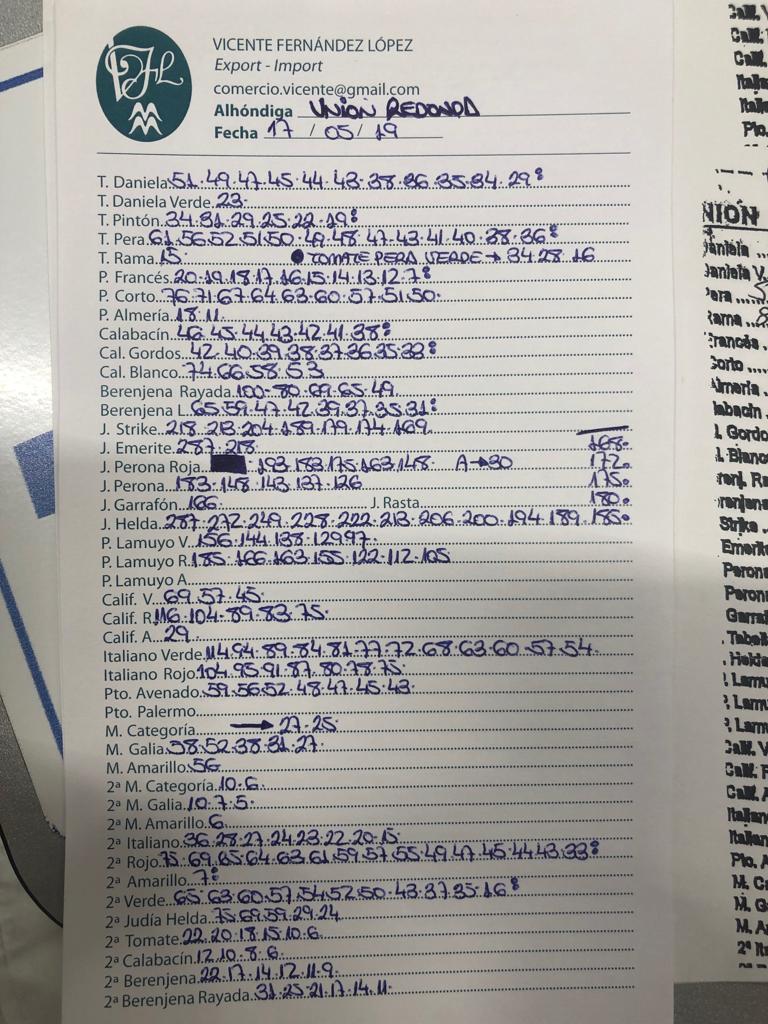 VICENTE FERNÁNDEZ LÓPEZ
Export - Import
comercio.vicente@gmail.com
Alhóndiga UNION REDONDA
Fecha 17 / 05 / 19
T. Daniela 51.49.47.45.44.43.38.36.35.34.29
T. Daniela Verde 23
T. Pintón 34.31.29.25.22.19
T. Pera 61.56.52.51.50.49.48.47.43.41.40.38.36
T. Rama 15 TOMATE PERA VERDE → 34.28.16
P. Francés 20.19.18.17.16.15.14.13.12.7
P. Corto 76.71.67.64.63.60.57.51.50
P. Almería 18.11
Calabacín 46.45.44.43.42.41.38
Cal. Gordos 42.40.39.38.37.36.35.33
Cal. Blanco 74.66.58.53
Berenjena Rayada 100-80.69.65.49
Berenjena L. 65.59.47.42.39.37.35.31
J. Strike 218.213.204.189.179.174.169
J. Emerite 287.218 168
J. Perona Roja 193.183.175.163.148 A→30 172
J. Perona 183.148.143.137.126 175
J. Garrafón 166 J. Rasta 180
J. Helda 287.272.249.228.222.213.206.200.194.189.185
P. Lamuyo V. 156.144.138.129.97
P. Lamuyo R. 185.166.163.155.122.112.105
P. Lamuyo A.
Calif. V. 69.57.45
Calif. R. 116.104.89.83.75
Calif. A. 29
Italiano Verde 114.94.89.84.81.77.72.68.63.60.57.54
Italiano Rojo 104.95.91.87.80.78.75
Pto. Avenado 59.56.52.48.47.45.43
Pto. Palermo
M. Categoría → 27.25
M. Galia 58.52.38.31.27
M. Amarillo 56
2ª M. Categoría 10.6
2ª M. Galia 10.7.5
2ª M. Amarillo 6
2ª Italiano 36.28.27.24.23.22.20.15
2ª Rojo 75.69.65.64.63.61.59.57.55.49.47.45.44.43.33
2ª Amarillo 7
2ª Verde 65.63.60.57.54.52.50.43.37.35.16
2ª Judía Helda 75.69.59.29.24
2ª Tomate 22.20.18.15.10.6
2ª Calabacín 12.10.8.6
2ª Berenjena 22.17.14.12.11.9
2ª Berenjena Rayada 31.25.21.17.14.11